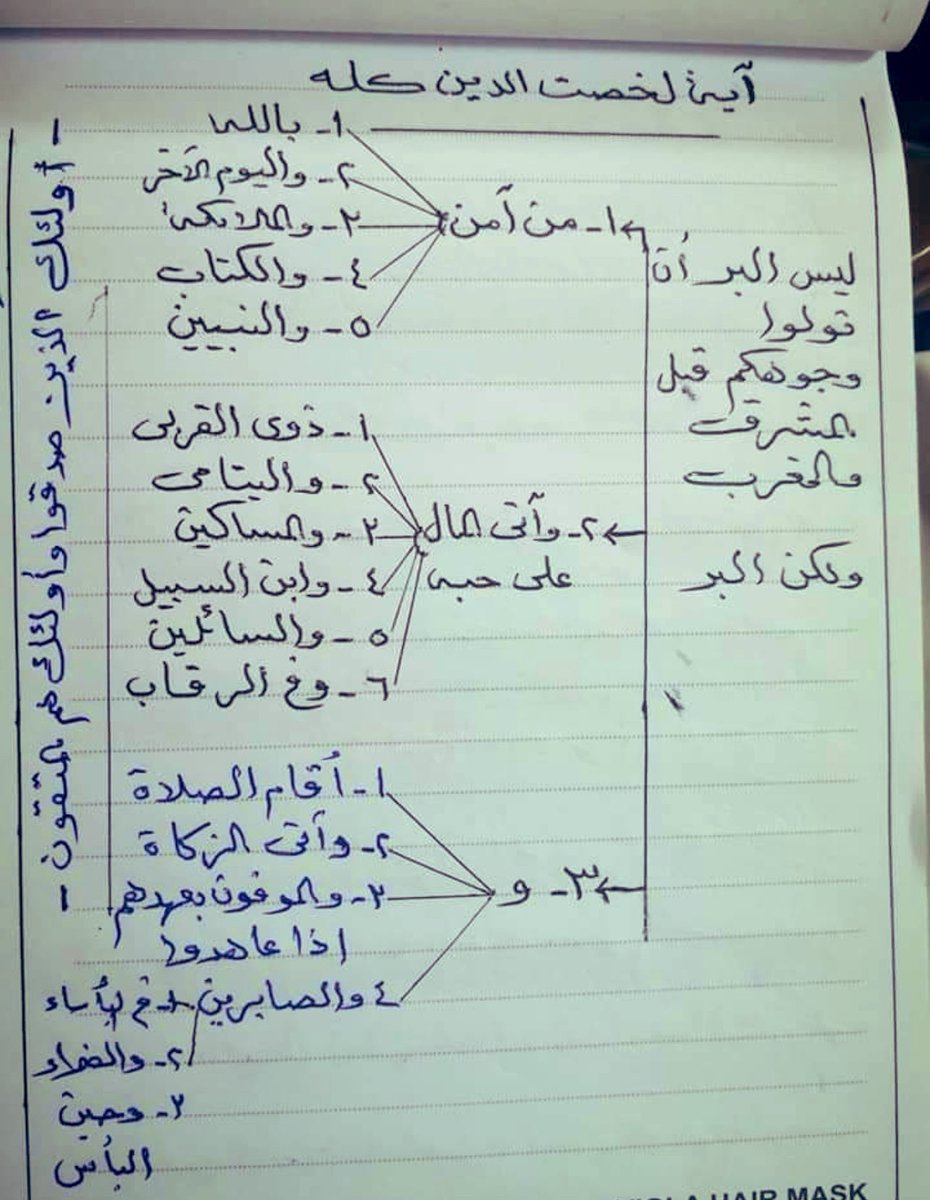 آية لخصت الدين كله
ليس البر أن
تولوا
وجوهكم قبل
المشرق
والمغرب
ولكن البر
١- من آمن
١- بالله
٢- واليوم الآخر
٣- والملائكة
٤- والكتاب
٥- والنبيين
٢- وآتى المال
على حبه
١- ذوى القربى
٢- واليتامى
٣- والمساكين
٤- وابن السبيل
٥- والسائلين
٦- وفى الرقاب
٣- و
١- أقام الصلاة
٢- وآتى الزكاة
٣- والموفون بعهدهم
اذا عاهدوا
٤ والصابرين
١- فى البأساء
٢- والضراء
٣- وحين
البأس
- أولئك الذين صدقوا وأولئك هم المتقون -
HAIR MASK